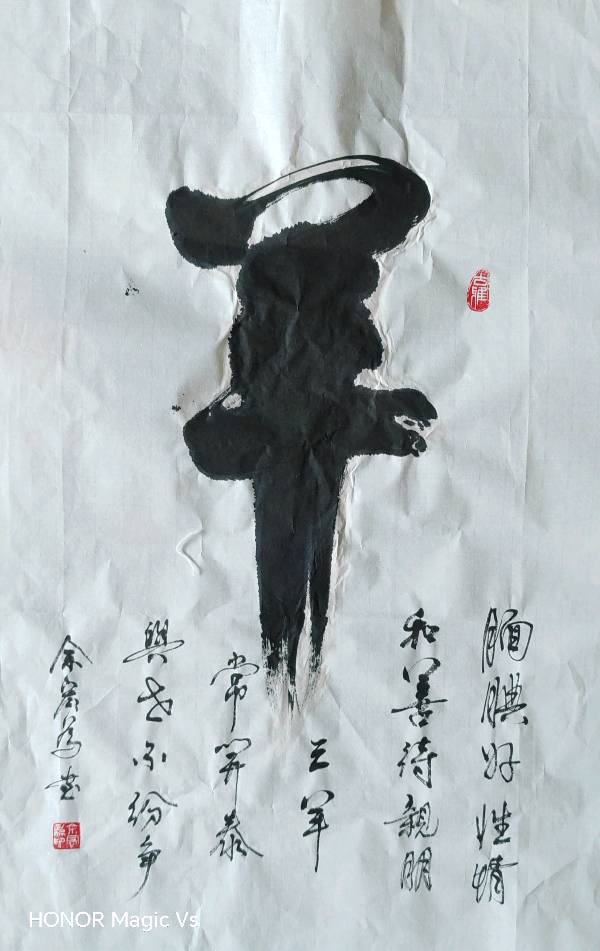 羊
腼腆好性情
和善待親朋
三羊
常開泰
與世不紛争
余宏為书
HONOR Magic Vs